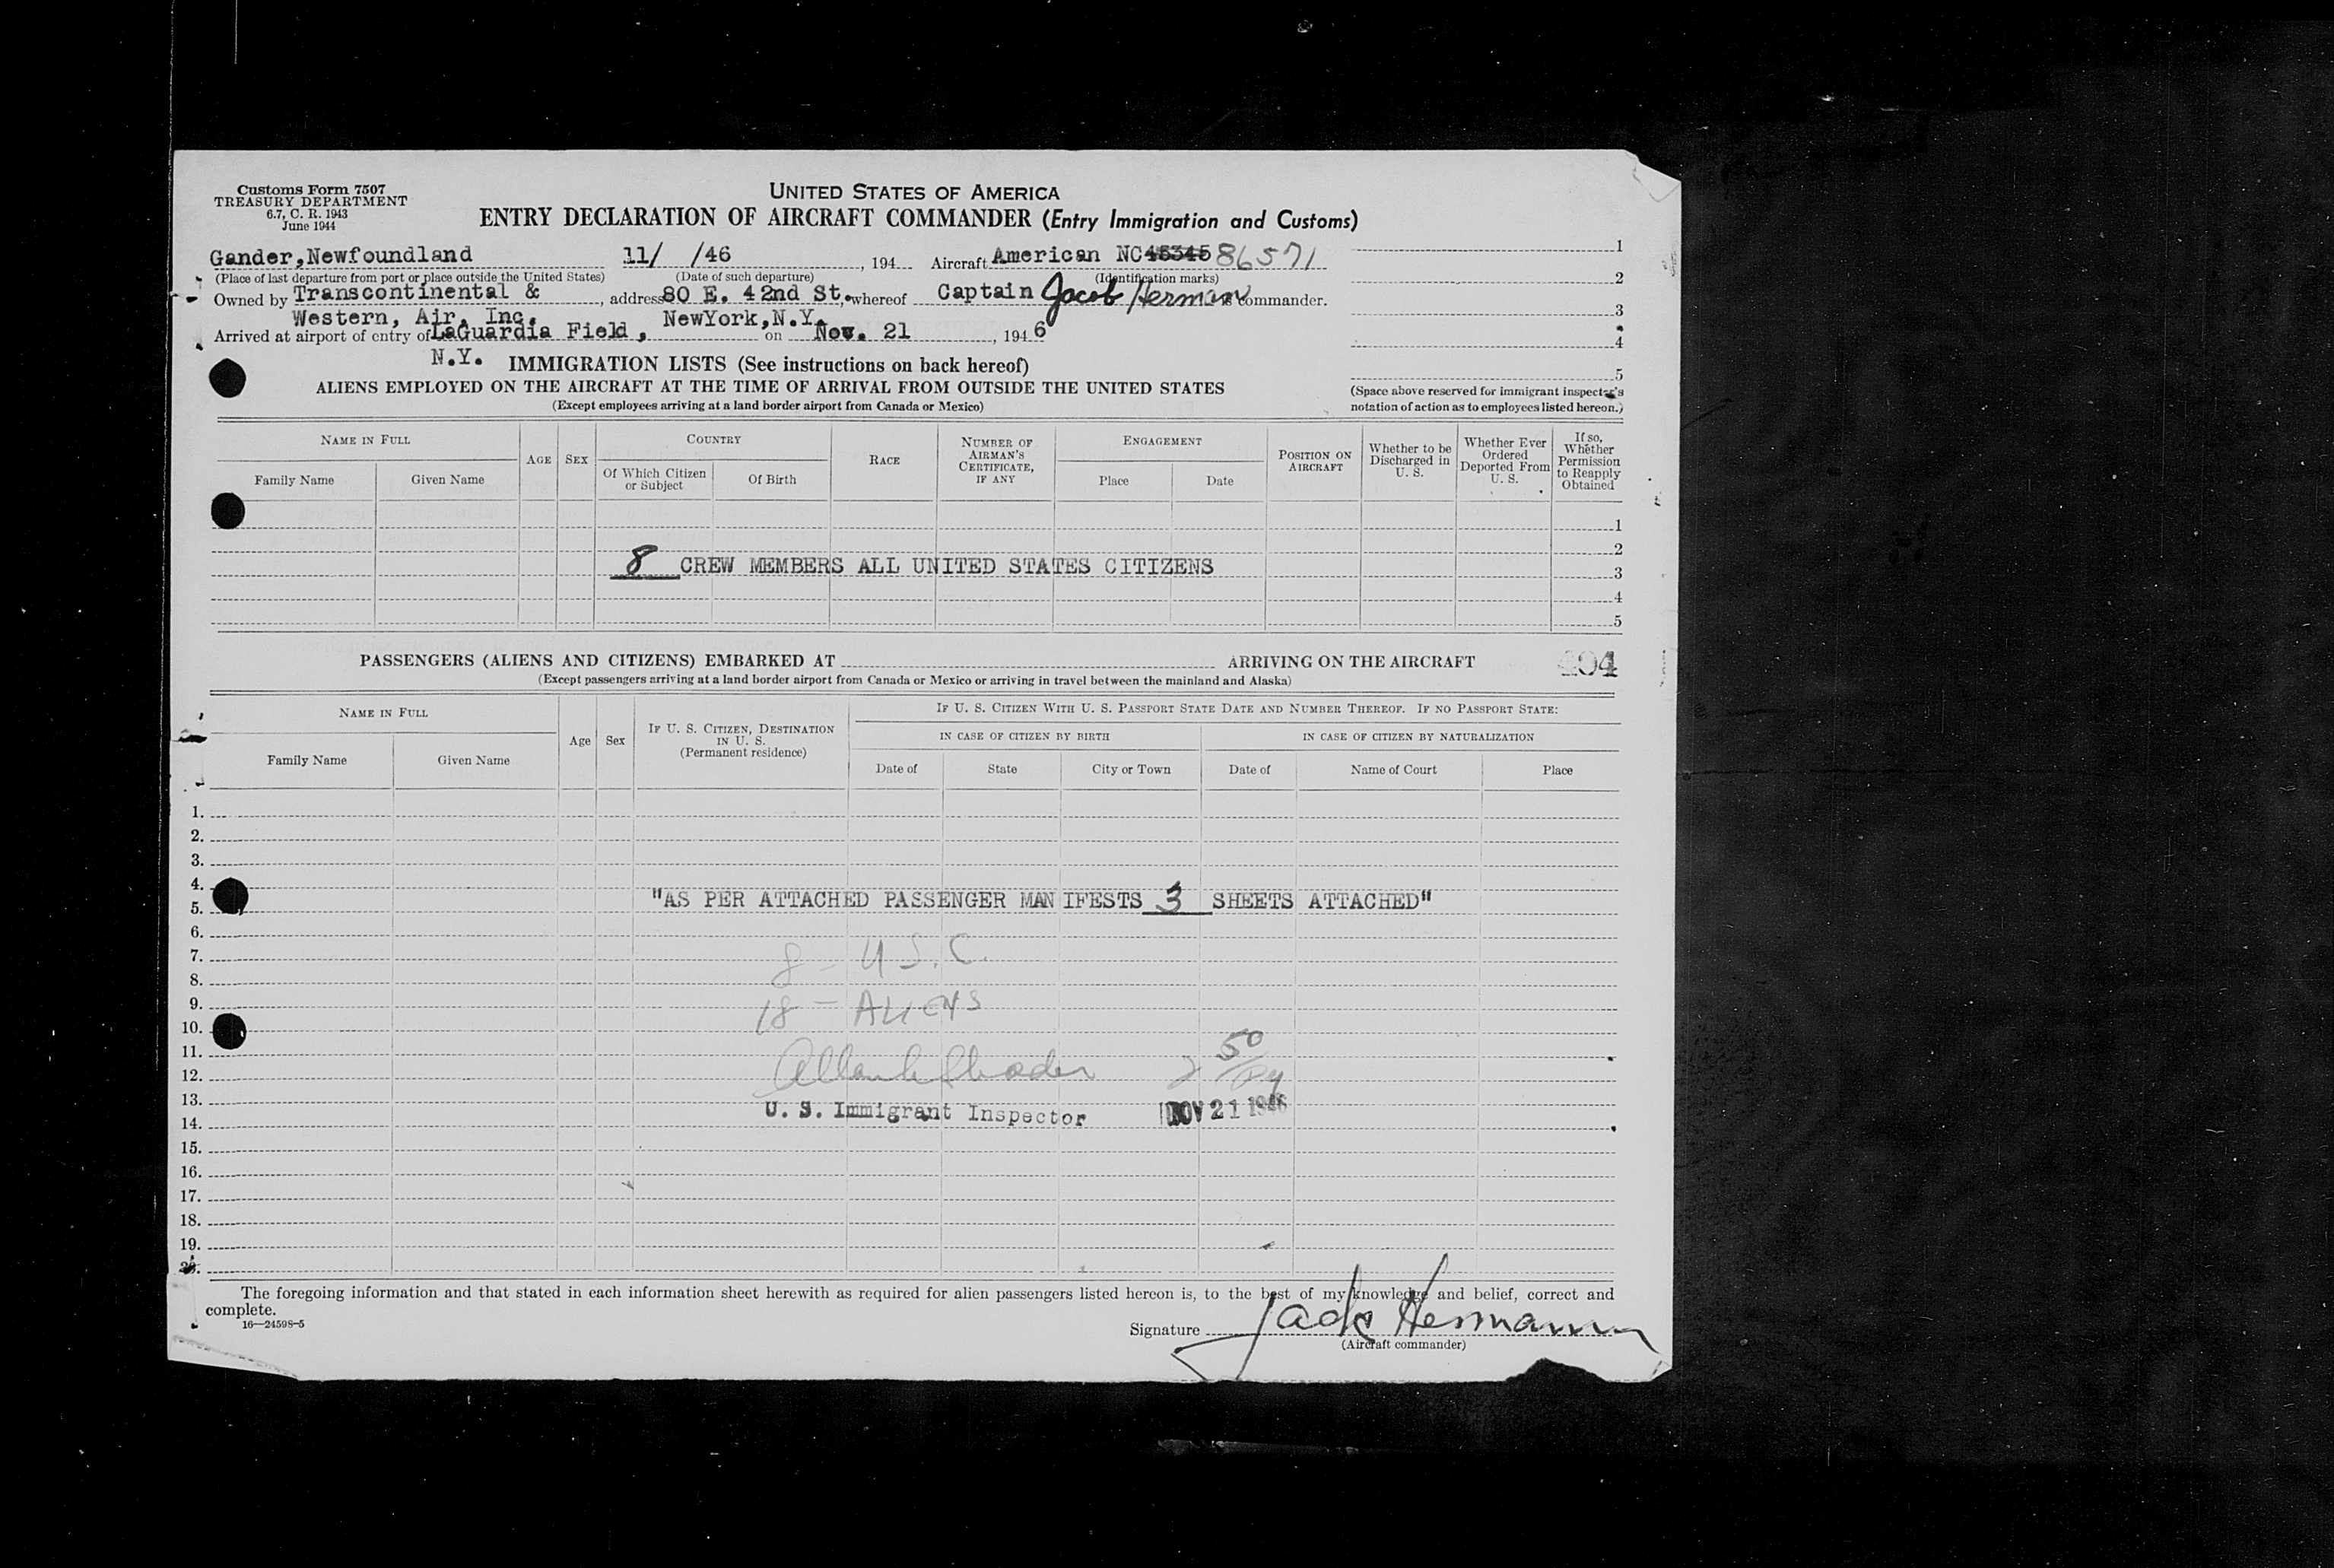 Customs Form 7507
TREASURY DEPARTMENT
6.7, C. R. 1943
June 1944
UNITED STATES OF AMERICA
ENTRY DECLARATION OF AIRCRAFT COMMANDER (Entry Immigration and Customs)
Gander,Newfoundland 11/ /46 , 194 Aircraft American NC45345 86571
(Place of last departure from port or place outside the United States) (Date of such departure) (Identification marks)
Owned by Transcontinental & , address 80 E. 42nd St. whereof Captain Jacob Herman commander.
Western, Air, Inc. NewYork,N.Y.
Arrived at airport of entry of LaGuardia Field, on Nov. 21 , 194 6
N.Y.
1
2
3
4
5
(Space above reserved for immigrant inspector's
notation of action as to employees listed hereon.)
IMMIGRATION LISTS (See instructions on back hereof)
ALIENS EMPLOYED ON THE AIRCRAFT AT THE TIME OF ARRIVAL FROM OUTSIDE THE UNITED STATES
(Except employees arriving at a land border airport from Canada or Mexico)
NAME IN FULL
Family Name
Given Name
AGE
SEX
COUNTRY
Of Which Citizen
or Subject
Of Birth
RACE
NUMBER OF
AIRMAN'S
CERTIFICATE,
IF ANY
ENGAGEMENT
Place
Date
POSITION ON
AIRCRAFT
Whether to be
Discharged in
U. S.
Whether Ever
Ordered
Deported From
U. S.
If so,
Whether
Permission
to Reapply
Obtained
1
2
8 CREW MEMBERS ALL UNITED STATES CITIZENS
3
4
5
PASSENGERS (ALIENS AND CITIZENS) EMBARKED AT ARRIVING ON THE AIRCRAFT
(Except passengers arriving at a land border airport from Canada or Mexico or arriving in travel between the mainland and Alaska)
NAME IN FULL
Family Name
Given Name
Age
Sex
IF U. S. CITIZEN, DESTINATION
IN U. S.
(Permanent residence)
IF U. S. CITIZEN WITH U. S. PASSPORT STATE DATE AND NUMBER THEREOF. IF NO PASSPORT STATE:
IN CASE OF CITIZEN BY BIRTH
IN CASE OF CITIZEN BY NATURALIZATION
Date of
State
City or Town
Date of
Name of Court
Place
1.
2.
3.
4.
5. "AS PER ATTACHED PASSENGER MANIFESTS 3 SHEETS ATTACHED"
6.
7. 8 - U.S.C.
8.
9. 18 - ALIENS
10.
11. 50
12.
13.
U. S. Immigrant Inspector NOV 21 1946
14.
15.
16.
17.
18.
19.
20.
The foregoing information and that stated in each information sheet herewith as required for alien passengers listed hereon is, to the best of my knowledge and belief, correct and
complete.
16—24598-5
Signature Jack Hermann
(Aircraft commander)